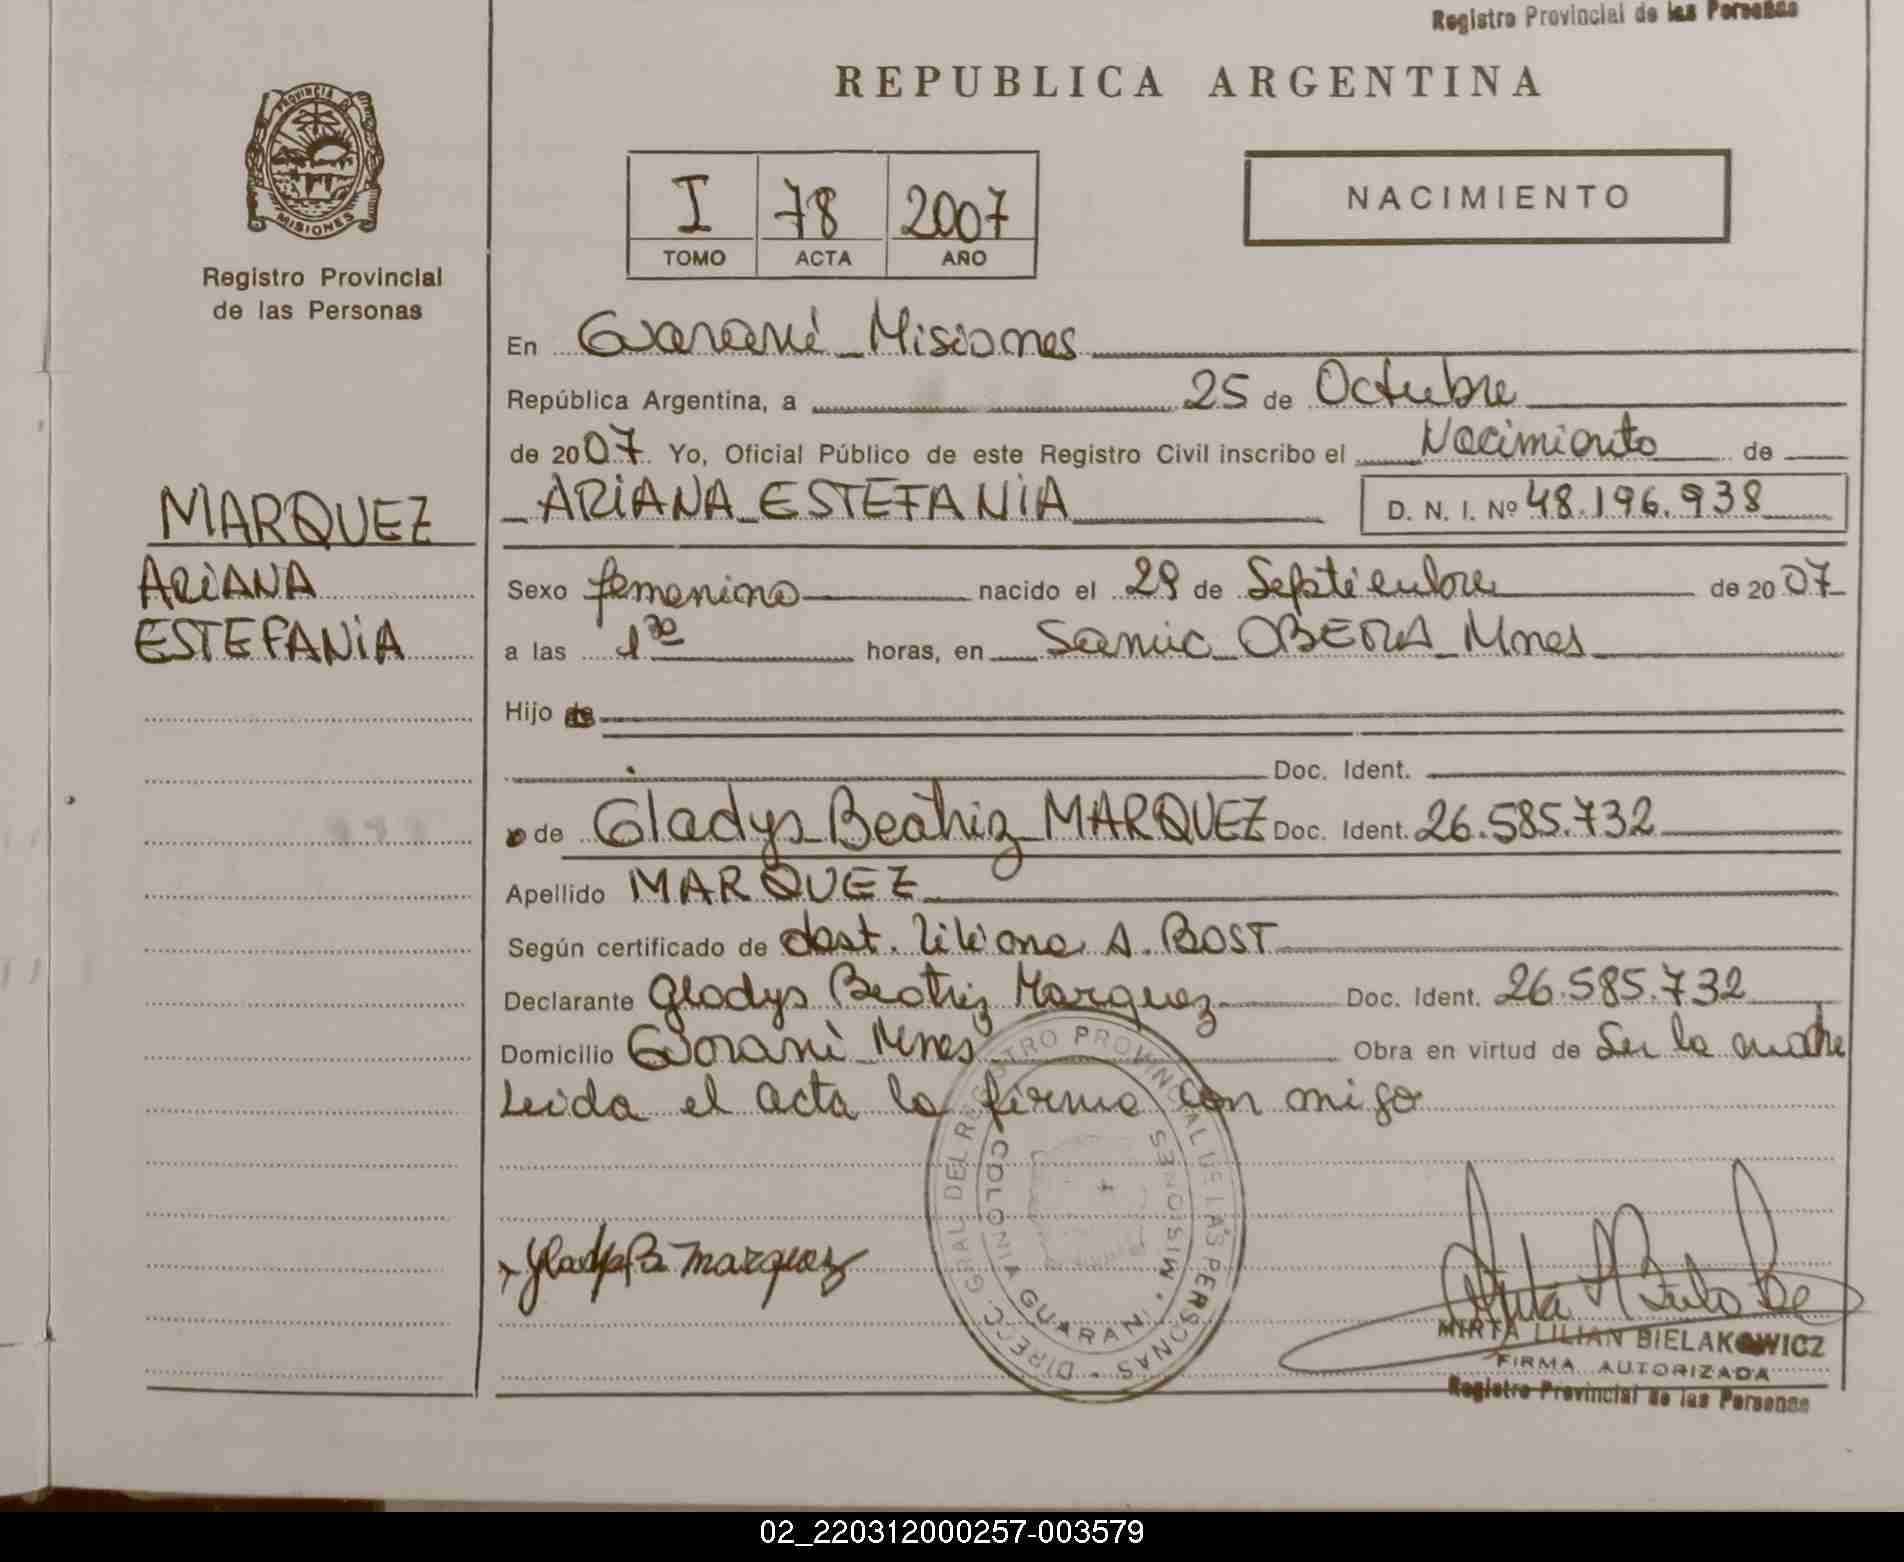 Registro Provincial de las Personas
REPUBLICA ARGENTINA
PROVINCIA DE
MISIONES
Registro Provincial
de las Personas
I 78 2007
TOMO ACTA AÑO
NACIMIENTO
En Guaraní _ Misiones
República Argentina, a 25 de Octubre
de 2007. Yo, Oficial Público de este Registro Civil inscribo el Nacimiento de
_ ARIANA _ ESTEFANIA D. N. I. Nº 48.196.938
MARQUEZ
ARIANA
ESTEFANIA
Sexo femenino nacido el 29 de Septiembre de 2007
a las 1 30 horas, en Samic _ OBERA _ Mnes
Hijo de
Doc. Ident.
de Gladys Beatriz MARQUEZ Doc. Ident. 26.585.732
Apellido MARQUEZ
Según certificado de obst. Liliana A. BOST
Declarante Gladys Beatriz Marquez Doc. Ident. 26.585.732
Domicilio Guaraní Mnes Obra en virtud de Ser la madre
Leida el acta la firma con migo
DIRECC. GRAL. DEL REGISTRO PROVINCIAL DE LAS PERSONAS
COLONIA GUARANI · MISIONES
Gladys B Marquez
MIRTA LILIAN BIELAKOWICZ
FIRMA AUTORIZADA
Registro Provincial de las Personas
02_220312000257-003579